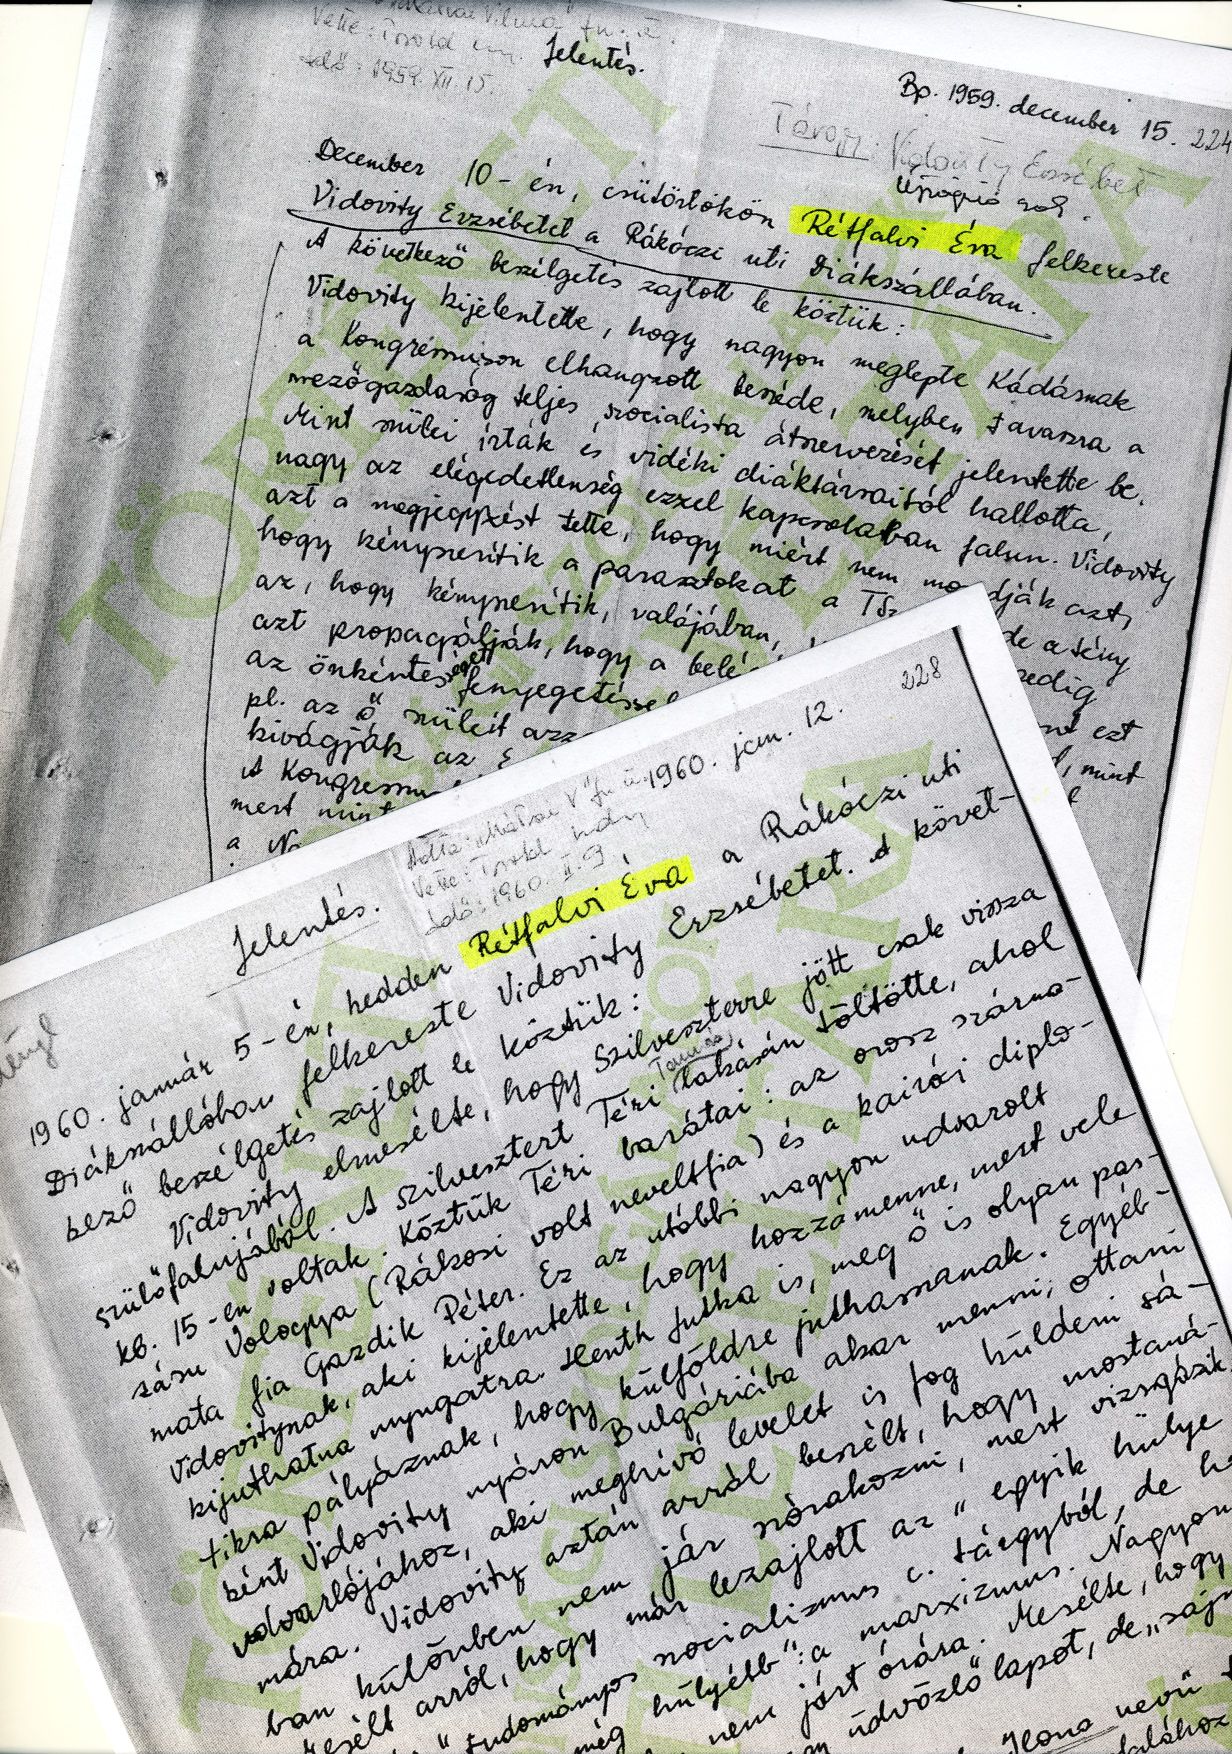 Jelentés.
1959. XII. 15.
Bp. 1959. december 15. 224
Vidovity Erzsébet
újságíró
December 10-én, csütörtökön Rétfalvi Éva felkereste
Vidovity Erzsébetet a Rákóczi uti Diákszállóban.
A következő beszélgetés zajlott le köztük:
Vidovity kijelentette, hogy nagyon meglepte Kádárnak
a Kongresszuson elhangzott beszéde, melyben tavaszra a
mezőgazdaság teljes szocialista átszervezését jelentette be.
Mint szülei írták és vidéki diáktársaitól hallotta,
nagy az elégedetlenség ezzel kapcsolatban falun. Vidovity
azt a megjegyzést tette, hogy miért nem mondják azt,
hogy kényszerítik a parasztokat a Tsz de a tény
az, hogy kényszerítik, valójában, pedig
azt propagálják, hogy a belé ezt
az önkéntességet fenyegetéssel mint
pl. az ő szüleit azz
kivágják az
A Kongresszu
mert mint
a
228
1960. jan. 12.
1960. II. 9.
Jelentés.
1960. január 5-én, kedden Rétfalvi Éva a Rákóczi uti
Diákszállóban felkereste Vidovity Erzsébetet. A követ-
kező beszélgetés zajlott le köztük:
Vidovity elmesélte, hogy Szilveszterre jött csak vissza
szülőfalujából. A szilvesztert Téri lakásán töltötte, ahol
kb. 15-en voltak. Köztük Téri barátai: az orosz szárma-
zásu Vologya (Rákosi volt neveltfia) és a kairói diplo-
mata fia Gazdik Péter. Ez az utóbbi nagyon udvarolt
Vidovitynak, aki kijelentette, hogy hozzámenne, mert vele
kijuthatna nyugatra. Henth Jutka is, meg ő is olyan pas-
tikra pályáznak, hogy külföldre juthassanak. Egyéb-
ként Vidovity nyáron Bulgáriába akar menni, ottani
udvarlójához, aki meghívó levelet is fog küldeni szá-
mára. Vidovity aztán arról beszélt, hogy mostaná-
ban különben nem jár szórakozni, mert vizsgázik
esélt arról, hogy már lezajlott az "egyik hülye
" tudományos szocializmus c. tárgyból, de h
még hülyébb": a marxizmus. Nagyon
nem járt órára. Mesélte, hogy
üdvözlő lapot, de "saj
Ilona nevű
TÖRTÉNETI
TÖRTÉNETI